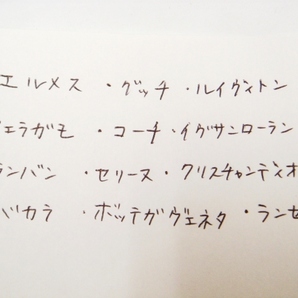 エルメス ・グッチ ・ルイヴィトン
ェラガモ ・コーチ ・イヴサンローラン
ランバン ・セリーヌ ・クリスチャンディオ
バカラ ・ボッテガヴェネタ ・ランセ